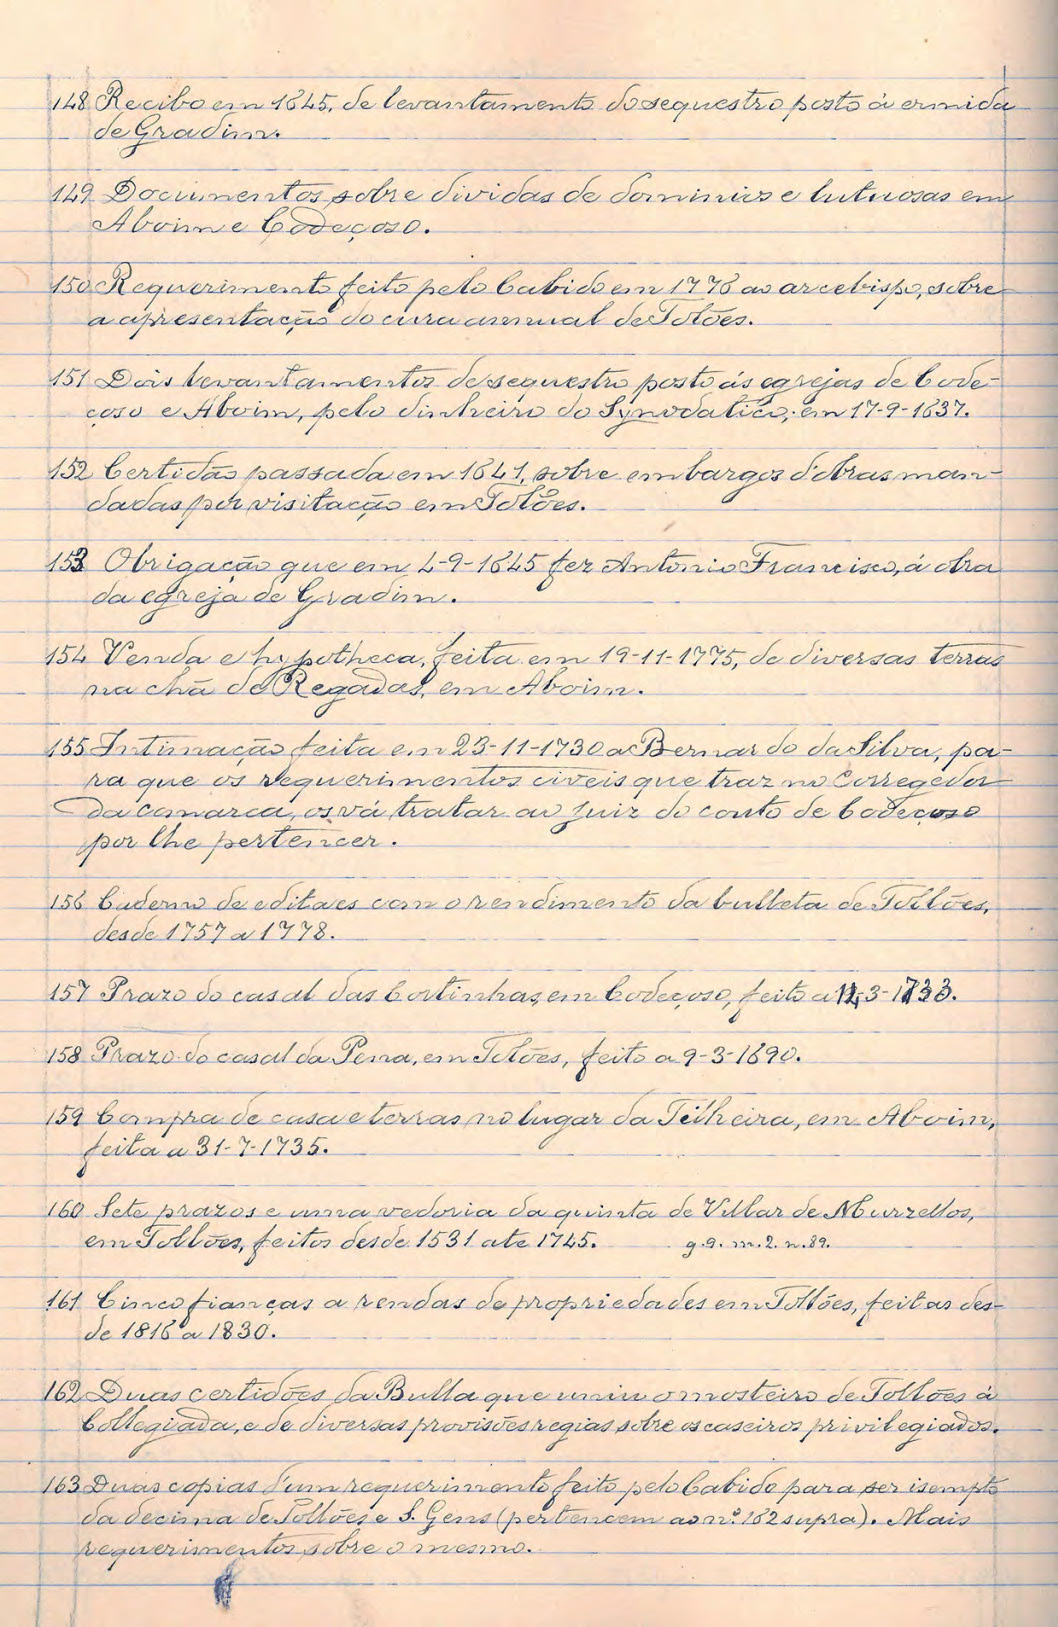 148 Recibo em 1645, de levantamento do sequestro posto á ermida
de Gradim.
149 Documentos sobre dividas de dominios e lutuosas em
Aboim e Codeçoso.
150 Requerimento feito pelo Cabido em 1776 ao arcebispo, sobre
a apresentação do cura annual de Tolões.
151 Dois levantamentos de sequestro posto ás egrejas de Code-
çoso e Aboim, pelo dinheiro do Synodatico, em 17-9-1637.
152 Certidão passada em 1641, sobre embargos d'obras man-
dadas por visitação em Tolões.
153 Obrigação que em 4-9-1645 fez Antonio Francisco, á obra
da egreja de Gradim.
154 Venda e hypotheca, feita em 19-11-1775, de diversas terras
na chã de Regadas, em Aboim.
155 Intimação feita em 23-11-1730 a Bernardo da Silva, pa-
ra que os requerimentos civeis que traz no corregedor
da comarca, os vá tratar ao juiz do couto de Codeçoso
por lhe pertencer.
156 Caderno de editaes com o rendimento da bulleta de Tollões,
desde 1757 a 1778.
157 Prazo do casal das Cortinhas, em Codeçoso, feito a -3-1733.
158 Prazo do casal da Pena, em Tolões, feito a 9-3-1690.
159 Compra de casa e terras no lugar da Telheira, em Aboim,
feita a 31-7-1735.
160 Sete prazos e uma vedoria da quinta de Villar de Murzellos,
em Tollões, feitos desde 1531 ate 1745. g. 9. m. 2. n. 89.
161 Cinco fianças a rendas de propriedades em Tollões, feitas des-
de 1816 a 1830.
162 Duas certidões da Bulla que uniu o mosteiro de Tollões á
Collegiada, e de diversas provisões regias sobre os caseiros privilegiados.
163 Duas copias d'um requerimento feito pelo Cabido para ser isempto
da decima de Tollões e S. Gens (pertencem ao nº. 162 supra). Mais
requerimentos sobre o mesmo.